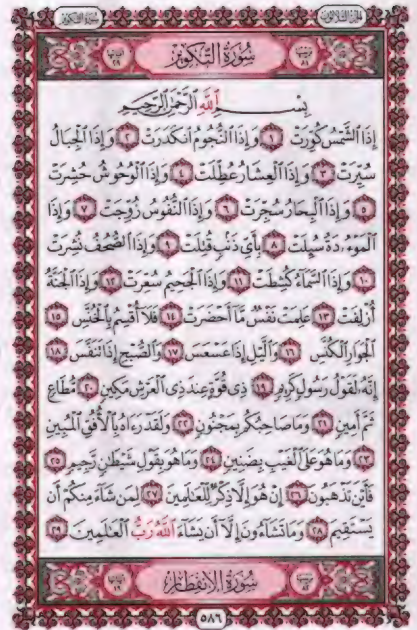 سُورَةُ التَّكْوِيرِ الجُزْءُ الثَّلَاثُونَ
سُورَةُ التَّكْوِيرِ
بِسْمِ اللَّهِ الرَّحْمَٰنِ الرَّحِيمِ
إِذَا الشَّمْسُ كُوِّرَتْ ١ وَإِذَا النُّجُومُ انكَدَرَتْ ٢ وَإِذَا الْجِبَالُ
سُيِّرَتْ ٣ وَإِذَا الْعِشَارُ عُطِّلَتْ ٤ وَإِذَا الْوُحُوشُ حُشِرَتْ
٥ وَإِذَا الْبِحَارُ سُجِّرَتْ ٦ وَإِذَا النُّفُوسُ زُوِّجَتْ ٧ وَإِذَا
الْمَوْءُۥدَةُ سُئِلَتْ ٨ بِأَيِّ ذَنۢبٍ قُتِلَتْ ٩ وَإِذَا الصُّحُفُ نُشِرَتْ
١٠ وَإِذَا السَّمَاءُ كُشِطَتْ ١١ وَإِذَا الْجَحِيمُ سُعِّرَتْ ١٢ وَإِذَا الْجَنَّةُ
أُزْلِفَتْ ١٣ عَلِمَتْ نَفْسٌ مَّا أَحْضَرَتْ ١٤ فَلَا أُقْسِمُ بِالْخُنَّسِ ١٥
الْجَوَارِ الْكُنَّسِ ١٦ وَالَّيْلِ إِذَا عَسْعَسَ ١٧ وَالصُّبْحِ إِذَا تَنَفَّسَ ١٨
إِنَّهُۥ لَقَوْلُ رَسُولٍ كَرِيمٍ ١٩ ذِي قُوَّةٍ عِندَ ذِي الْعَرْشِ مَكِينٍ ٢٠ مُّطَاعٍ
ثَمَّ أَمِينٍ ٢١ وَمَا صَاحِبُكُم بِمَجْنُونٍ ٢٢ وَلَقَدْ رَءَاهُ بِالْأُفُقِ الْمُبِينِ
٢٣ وَمَا هُوَ عَلَى الْغَيْبِ بِضَنِينٍ ٢٤ وَمَا هُوَ بِقَوْلِ شَيْطَٰنٍ رَّجِيمٍ ٢٥
فَأَيْنَ تَذْهَبُونَ ٢٦ إِنْ هُوَ إِلَّا ذِكْرٌ لِّلْعَٰلَمِينَ ٢٧ لِمَن شَاءَ مِنكُمْ أَن
يَسْتَقِيمَ ٢٨ وَمَا تَشَاءُونَ إِلَّا أَن يَشَاءَ اللَّهُ رَبُّ الْعَٰلَمِينَ ٢٩
سُورَةُ الِانفِطَارِ
٥٨٦